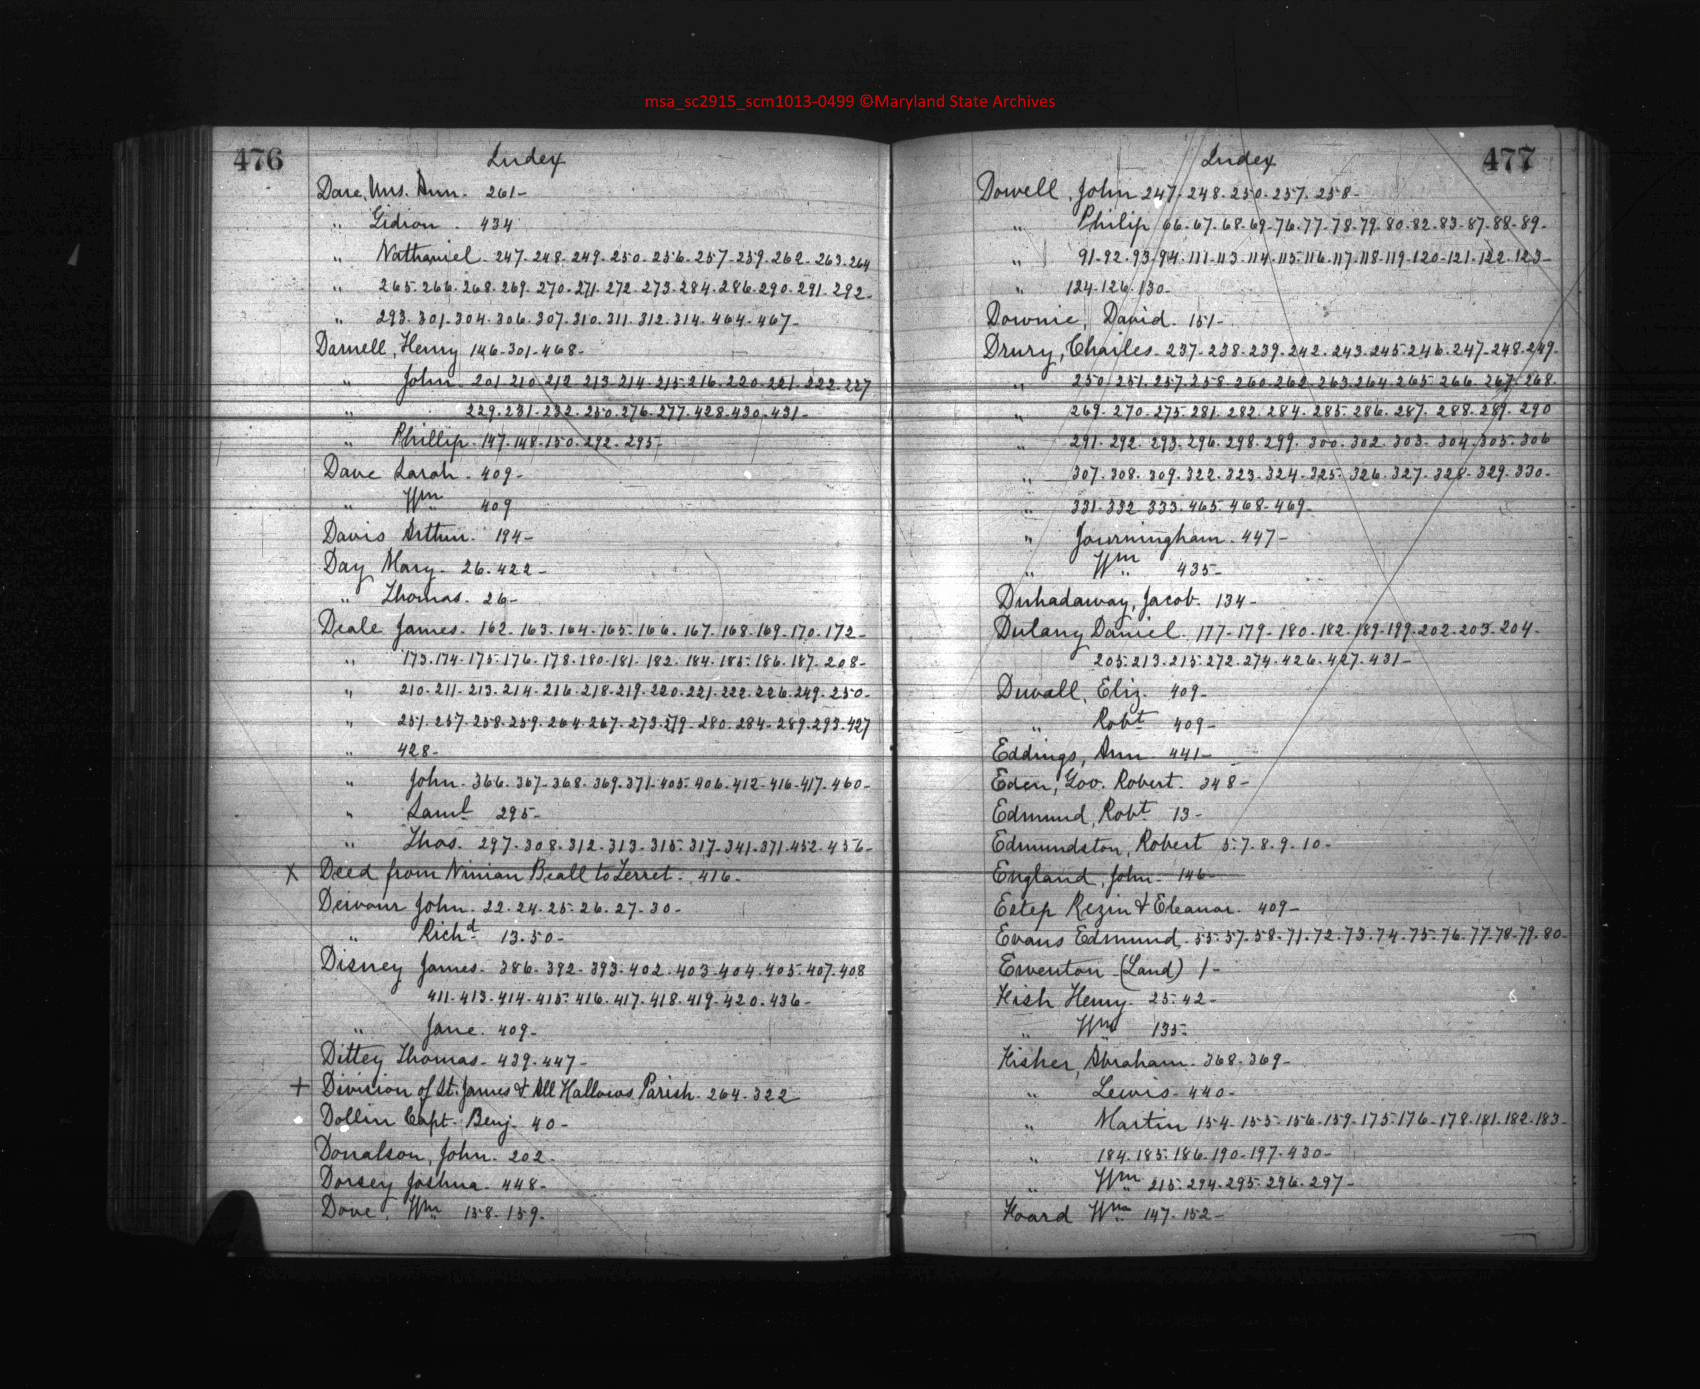 msa_sc2915_scm1013-0499 ©Maryland State Archives
476
Index
Dare, Mrs. Ann. 261-
" Gideon. 434
" Nathaniel. 247. 248. 249. 250. 256. 257. 259. 262. 263. 264
" 265. 266. 268. 269. 270. 271. 272. 273. 284. 286. 290. 291. 292-
" 293. 301. 304. 306. 307. 310. 311. 312. 314. 464. 467-
Darnell, Henry 146-301-468-
" John. 201. 210. 212. 213. 214. 215. 216. 220. 221. 222. 227
" 229. 231. 232. 250. 276. 277. 428. 430. 431-
" Phillip. 147. 148. 150. 292. 295-
Dave Sarah. 409-
" Wm 409
Davis Arthur. 194-
Day Mary. 26. 422-
" Thomas. 26-
Deale James. 162. 163. 164. 165. 166. 167. 168. 169. 170. 172-
" 173. 174. 175. 176. 178. 180. 181. 182. 184. 185. 186. 187. 208-
" 210. 211. 213. 214. 216. 218. 219. 220. 221. 222. 226. 249. 250-
" 251. 257. 258. 259. 264. 267. 273. 279. 280. 284. 289. 293. 427
" 428-
" John. 366. 367. 368. 369. 371. 405. 406. 412. 416. 417. 460-
" Saml 295-
" Thos. 297. 308. 312. 313. 315. 317. 341. 371. 452. 456-
X Deed from Ninian Beall to Lerret. 416-
Deivour John. 22. 24. 25. 26. 27. 30-
" Richd 13. 50-
Disney James. 386. 392. 393. 402. 403. 404. 405. 407. 408
411. 413. 414. 415. 416. 417. 418. 419. 420. 436-
" Jane. 409-
Dittey Thomas. 439. 447-
+ Division of St. James & All Hallows Parish. 264. 322
Dollin Capt. Benj. 40-
Donalson, John. 202-
Dorsey Joshua. 448-
Dove, Wm 158. 159.
477
Index
Dowell, John 247. 248. 250. 257. 258-
" Philip 66. 67. 68. 69. 76. 77. 78. 79. 80. 82. 83. 87. 88. 89-
" 91. 92. 93. 94. 111. 113. 114. 115. 116. 117. 118. 119. 120. 121. 122. 123-
" 124. 126. 130-
Downie, David. 151-
Drury, Charles. 237. 238. 239. 242. 243. 245. 246. 247. 248. 249-
" 250. 251. 257. 258. 260. 262. 263. 264. 265. 266. 267. 268-
" 269. 270. 275. 281. 282. 284. 285. 286. 287. 288. 289. 290
" 291. 292. 293. 296. 298. 299. 300. 302. 303. 304. 305. 306
" 307. 308. 309. 322. 323. 324. 325. 326. 327. 328. 329. 330-
" 331. 332. 333. 465. 468. 469-
" Jourmingham. 447-
" Wm 435-
Duhadaway, Jacob. 134-
Dulany Daniel. 177-179-180. 182. 189. 199. 202. 203. 204-
205. 213. 215. 272. 274. 426. 427. 431-
Duvall, Eliz. 409-
" Robt 409-
Eddings, Ann. 441-
Eden, Gov. Robert. 348-
Edmund, Robt 13-
Edmundston, Robert 5. 7. 8. 9. 10-
England, John. 146-
Estep Rezin & Eleanor. 409-
Evans Edmund. 55. 57. 58. 71. 72. 73. 74. 75. 76. 77. 78. 79. 80-
Ewenton (Land) 1-
Fish Henry. 25. 42-
" Wm 135-
Fisher, Abraham. 368. 369-
" Lewis. 440-
" Martin 154. 155. 156. 159. 175. 176. 178. 181. 182. 183-
" 184. 185. 186. 190. 197. 430-
" Wm 215. 294. 295. 296. 297-
Foard Wm 147. 152-